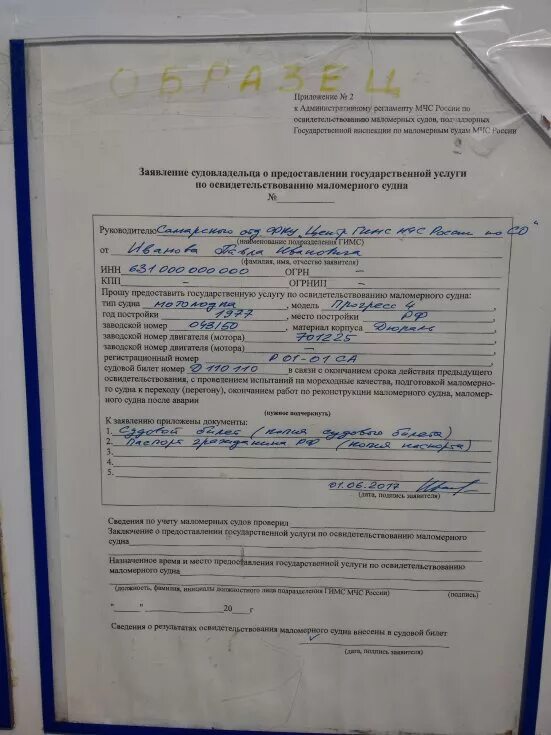 ОБРАЗЕЦ
Приложение № 2
к Административному регламенту МЧС России по
освидетельствованию маломерных судов, поднадзорных
Государственной инспекции по маломерным судам МЧС России
Заявление судовладельца о предоставлении государственной услуги
по освидетельствованию маломерного судна
№
Руководителю Самарского отд ФКУ "Центр ГИМС МЧС России по СО"
(наименование подразделения ГИМС)
от Иванова Павла Ивановича
(фамилия, имя, отчество заявителя)
ИНН 631 000 000 000 ОГРН –
КПП – ОГРНИП –
Прошу предоставить государственную услугу по освидетельствованию маломерного судна:
тип судна мотолодка, модель Прогресс 4,
год постройки 1977, место постройки РФ,
заводской номер 043150, материал корпуса Дюраль,
заводской номер двигателя (мотора) 701225,
заводской номер двигателя (мотора) –,
регистрационный номер Р 01-01 СА,
судовой билет номер Д 110 110 в связи с окончанием срока действия предыдущего
освидетельствования, с проведением испытаний на мореходные качества, подготовкой маломерно-
го судна к переходу (перегону), окончанием работ по реконструкции маломерного судна, маломер-
ного судна после аварии
(нужное подчеркнуть)
К заявлению приложены документы:
1. Судовой билет (копия судового билета)
2. Паспорт гражданина РФ (копия паспорта)
3.
4.
5.
01.06.2017
(дата, подпись заявителя)
Сведения по учету маломерных судов проверил
Заключение о предоставлении государственной услуги по освидетельствованию маломерного
судна
Назначенное время и место предоставления государственной услуги по освидетельствованию
маломерного судна
(должность, фамилия, инициалы должностного лица подразделения ГИМС МЧС России) (подпись)
" " 20 г
Сведения о результатах освидетельствования маломерного судна внесены в судовой билет
(дата, подпись заявителя)